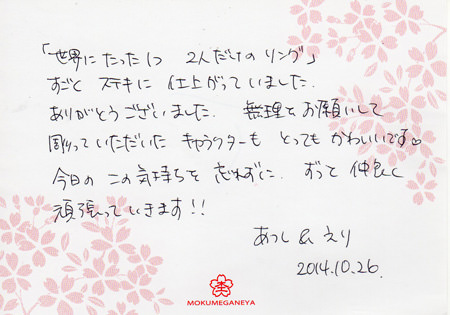 「世界にたった1つ 2人だけのリング」
すごく ステキに 仕上がっていました.
ありがとうございました. 無理をお願いして
彫っていただいた キャラクターも とっても かわいいです♡
今日の この気持ちを 忘れずに. ずっと 仲良く
頑張っていきます!!
あつし & えり
2014.10.26.
MOKUMEGANEYA